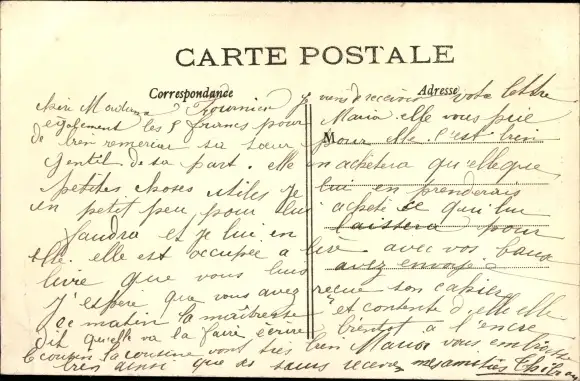 CARTE POSTALE
Correspondance Adresse
M
chère Madame Fournier je viens de recevoir votre lettre
également les 5 francs pour Maria elle vous prie
de bien remercier sa sœur pour elle c'est bien
gentil de sa part. elle en achetera quelque
petites choses utiles je lui en prenderais
un petit peu pour lui acheté ce qui lui
faudra et je lui en laissera pour
elle. elle est occupée a lire avec vos beau
livre que vous lui avez envoyé
J'espère que vous avez reçue son cahier
ce matin la maîtresse et contente d'elle elle
dit qu'elle va la faire écrire bientot a l'encre
le cousin la cousine vont très bien Maria vous embrasse
bien ainsi que sa sœurs recevez mes amitiés